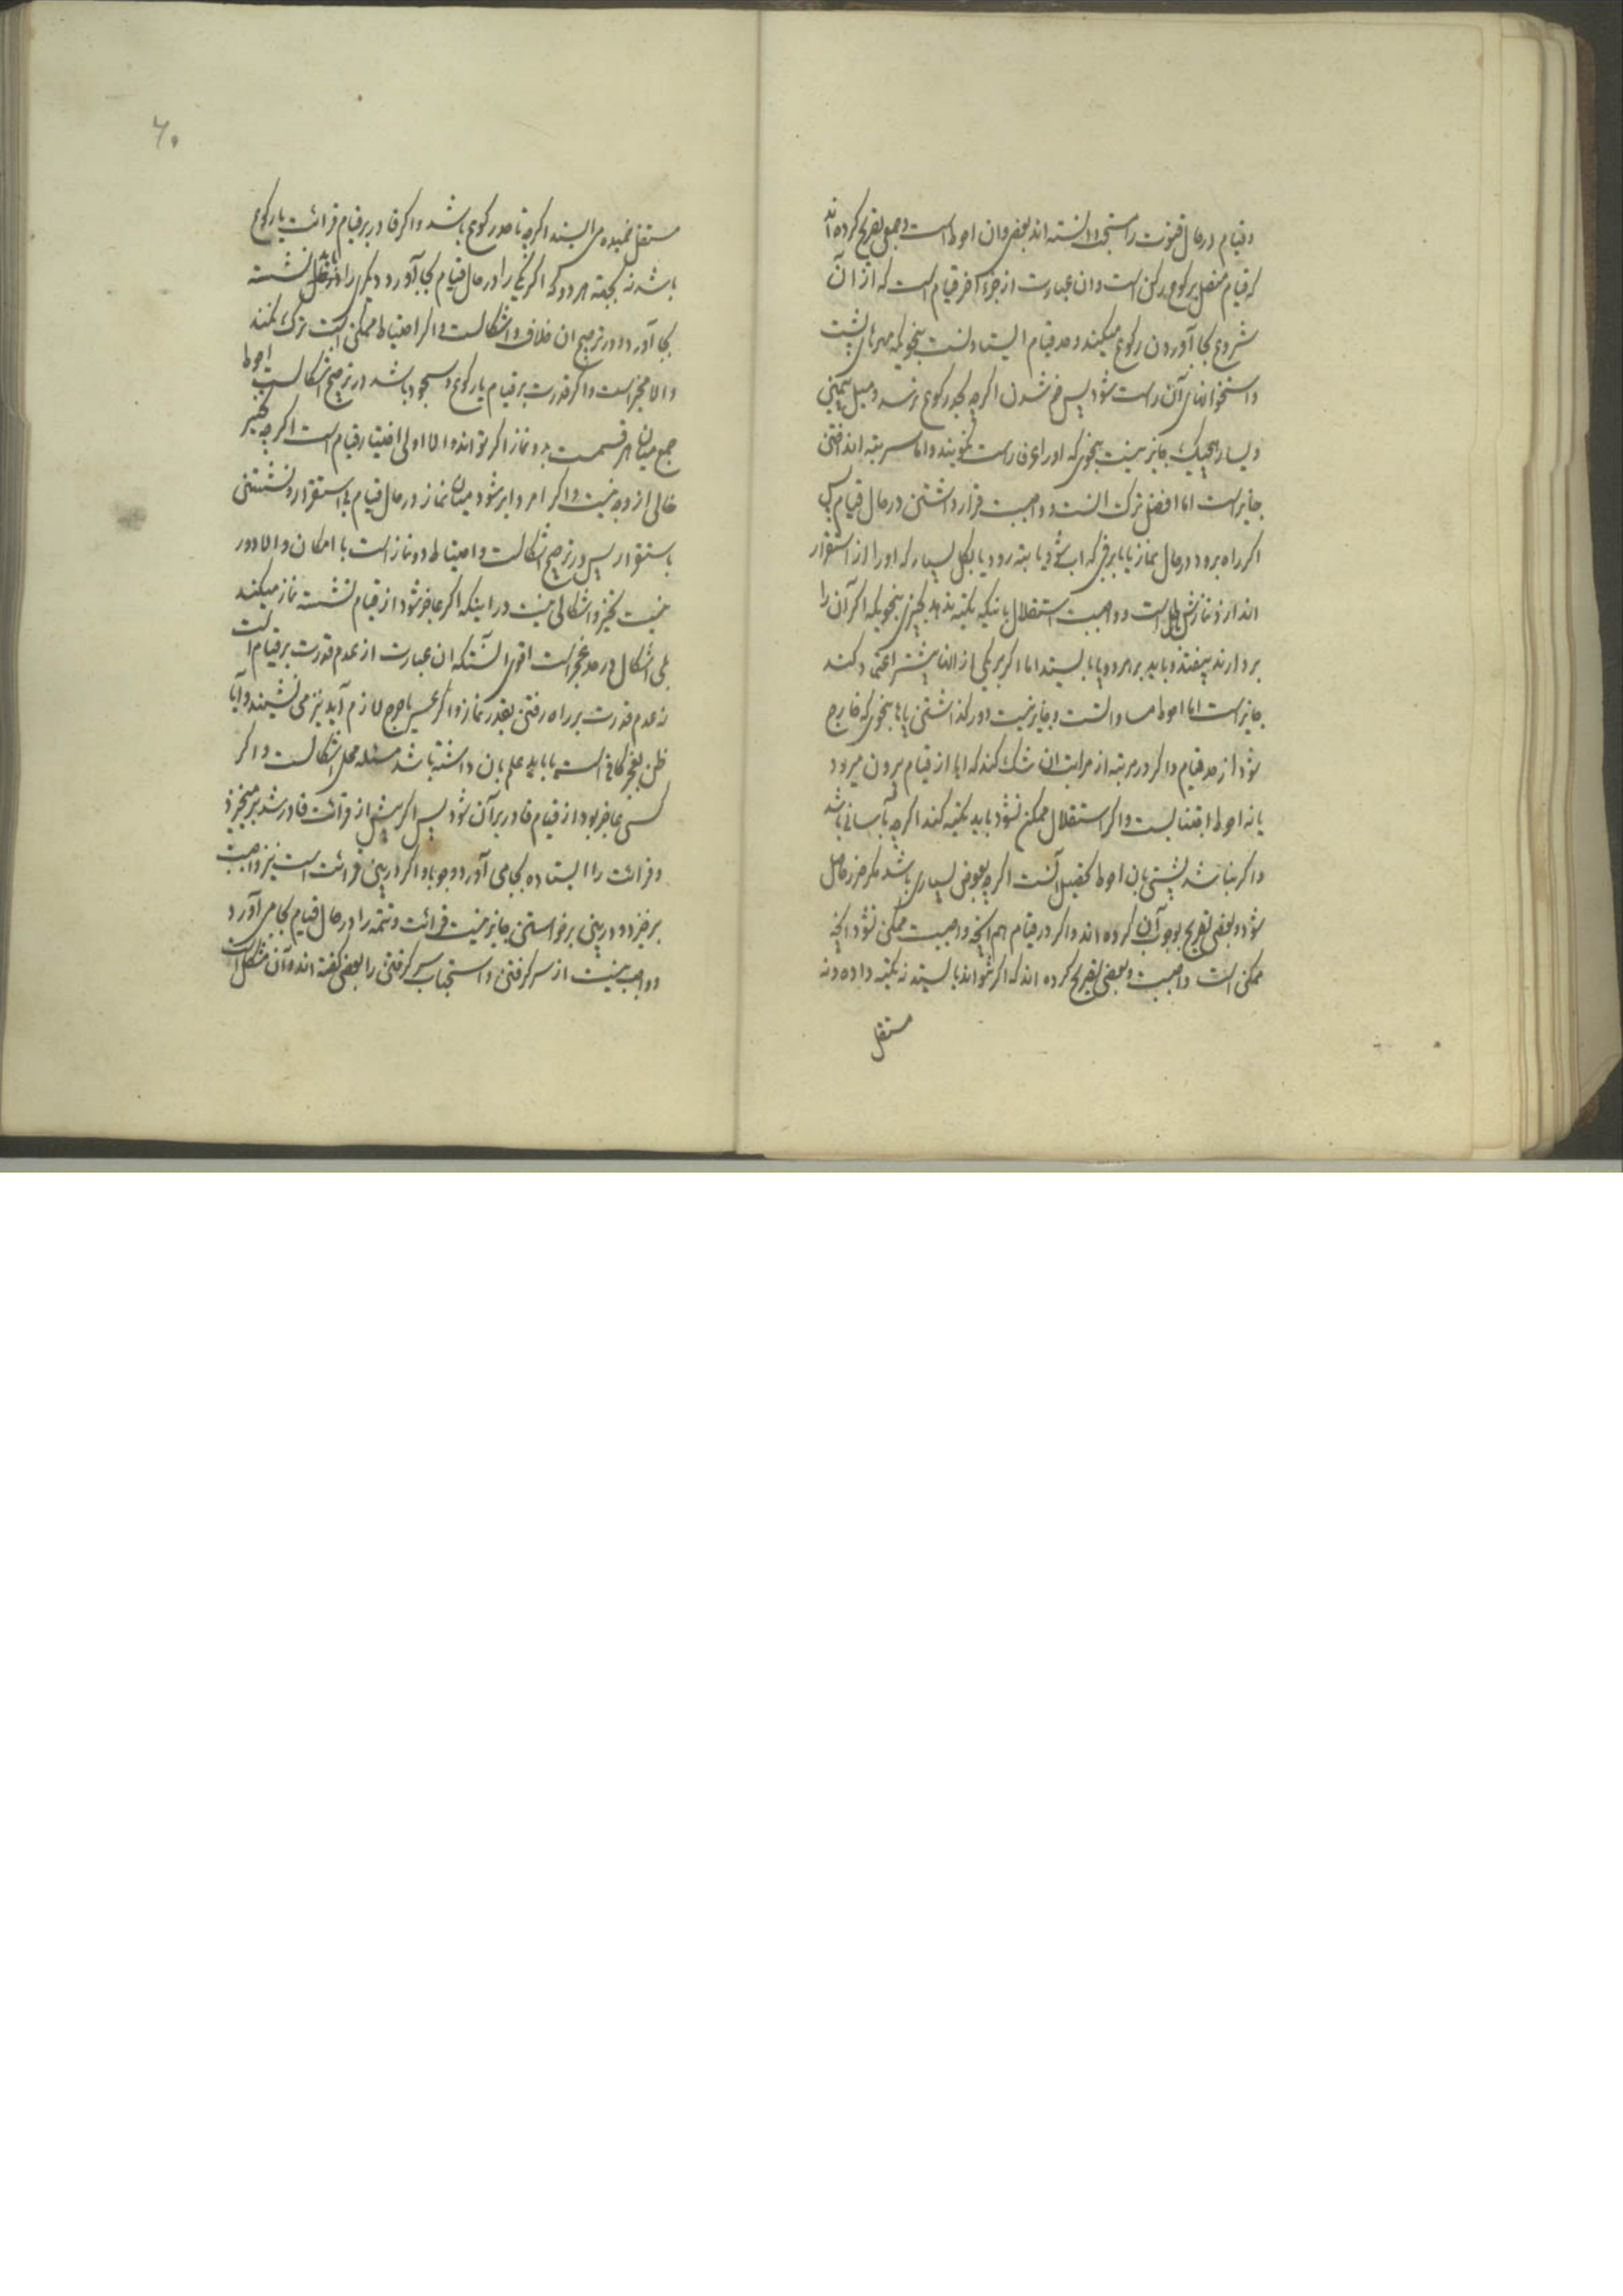 وقیام در حال قنوت را مستحب دانسته اند بعضی وان احوط است و جمعی تصریح کرده اند
که قیام متصل برکوع رکن است وان عبارت از جزء آخر قیام است که از آن
شروع بجا آوردن رکوع میکند و حد قیام ایستادنست بنحویکه مهرهای پشت
واستخوانهای آن راست شود پس خم شدن اگرچه بحد رکوع نرسد و میل بیمین
ویسار هیچیک جایز نیست بنحوی که اورا عرفا راست نگویند واما سر بته انداختن
جایز است اما افضل ترک انست و واجبست قرار داشتن در حال قیام پس
اگر راه برود در حال نماز یا بابرفی که اب شود یا بته رود یا بکل بسیار که اورا از استقرار
اندازد نمازش باطل است و واجبست استقلال باینکه تکیه ندهد بچیزی بنحویکه اگر آن را
بردارند بیفتد وباید بر هر دو پا بایستد اما اگر بر یکی از انها بیشتر اعتماد کند
جایز است اما احوط مساواتست وجایز نیست دور گذاشتن پاها بنحوی که خارج
شود از حد قیام واگر در مرتبه از مراتب ان شک کند که ایا از قیام بیرون میرود
یا نه احوط اجتنابست واگر استقلال ممکن نشود باید تکیه کند اگرچه بآسانی باشد
واگر نباشد پشتی بان احوط تحصیل آنست اگرچه بعوض بسیاری باشد مگر ضرر حاصل
شود و بعضی تصریح بوجوب آن کرده اند واگر در قیام هم انچه واجبست ممکن نشود انچه
ممکن است واجبست و بعضی تصریح کرده اند که اگر نتواند بایستد نه تکیه داده و نه
مستقل
۶۰
مستقل خمیده می ایستد اگرچه تا حد رکوع باشد واگر قادر بر قیام قرائت یا رکوع
باشد نه بجهة هر دو که اگر یکی را در حال قیام بجا آورد دیگری را باید نشسته
بجا آورد در ترجیح ان خلاف واشکالست واگر احتیاط ممکن است ترک نکند
والا مخیر است واگر قدرت بر قیام یا رکوع وسجود باشد در ترجیح اشکالست احوط
جمع میان هر قسمت بدو نماز اگر تواند والا اولی اختیار قیام است اگرچه تخییر
خالی از وجه نیست واگر امر دایر شود میان نماز در حال قیام بی استقرار و نشستن
باستقرار پس در ترجیح اشکالست واحتیاط دو نماز است با امکان والا دور
نیست تخییر واشکالی نیست در اینکه اگر عاجز شود از قیام نشسته نماز میکند
بلی اشکال در حد عجز است اقوی انستکه ان عبارت از عدم قدرت بر قیام است
نه عدم قدرت بر راه رفتن بقدر نماز واگر عسر یا حرج لازم آید نیز می نشیند وآیا
ظن بعجز کافی است یا باید علم بان داشته باشد مسئله محل اشکالست واگر
کسی عاجز بود از قیام قادر بر آن شود پس اگر پیش از قرائت قادر شد بر میخیزد
وقرائت را ایستاده بجا می آورد وجوبا واگر در بین قرائت است نیز واجبست
برخیزد و در بین برخواستن جایز نیست قرائت وتتمه را در حال قیام بجا می آورد
و واجب نیست از سر گرفتن واستحباب سر گرفتن را بعضی گفته اند وآن مشکل است